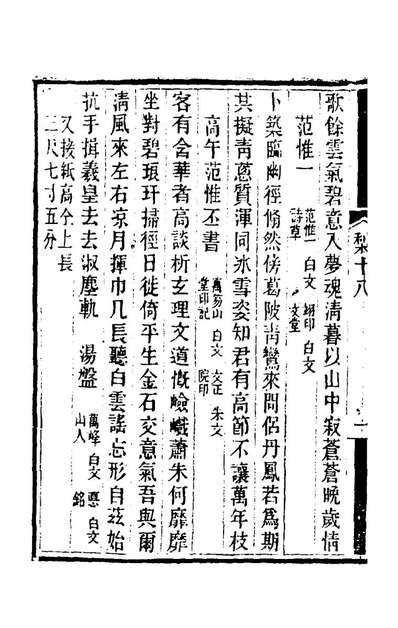 歌餘雲氣碧意入夢魂清暮以山中寂蒼蒼晩歲情
范惟一 范惟一 白文 翊印 白文
詩草 文堂
卜築臨幽徑翛然傍葛陂靑鸞來問侶丹鳳若爲期
其擬靑蔥質渾同氷雪姿知君有高節不讓萬年枝
高午范惟丕書 萬笏山 白文 文正 朱文
堂印記 院印
客有含華者高談析玄理文道慨嶮巇蕭朱何靡靡
坐對碧琅玕掃徑日徙倚平生金石交意氣吾與爾
淸風來左右京月揮巾几長聽白雲謠忘形自茲始
抗手揖羲皇去去淑塵軌 湯盤 萬峰 白文 白文
山人 銘
又接紙高仝上長
二尺七寸五分
十八